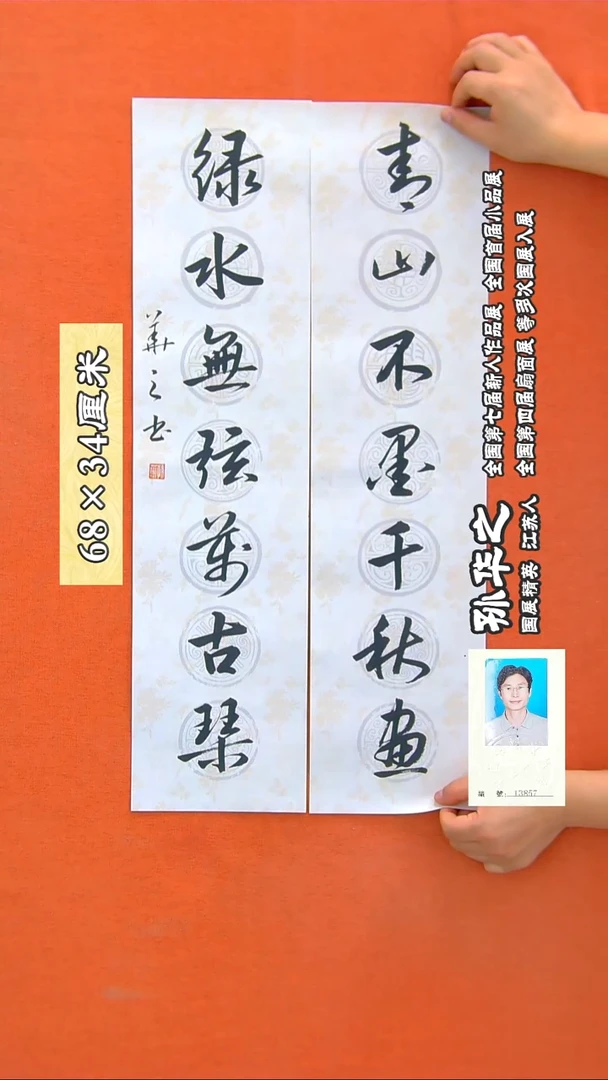 青山不墨千秋画
绿水無弦萬古琴
華之书
孙华之
国展精英 江苏人
全国第七届新人作品展 全国首届小品展
全国第四届扇面展 等多次国展入展
68×34厘米
編 號: 13857